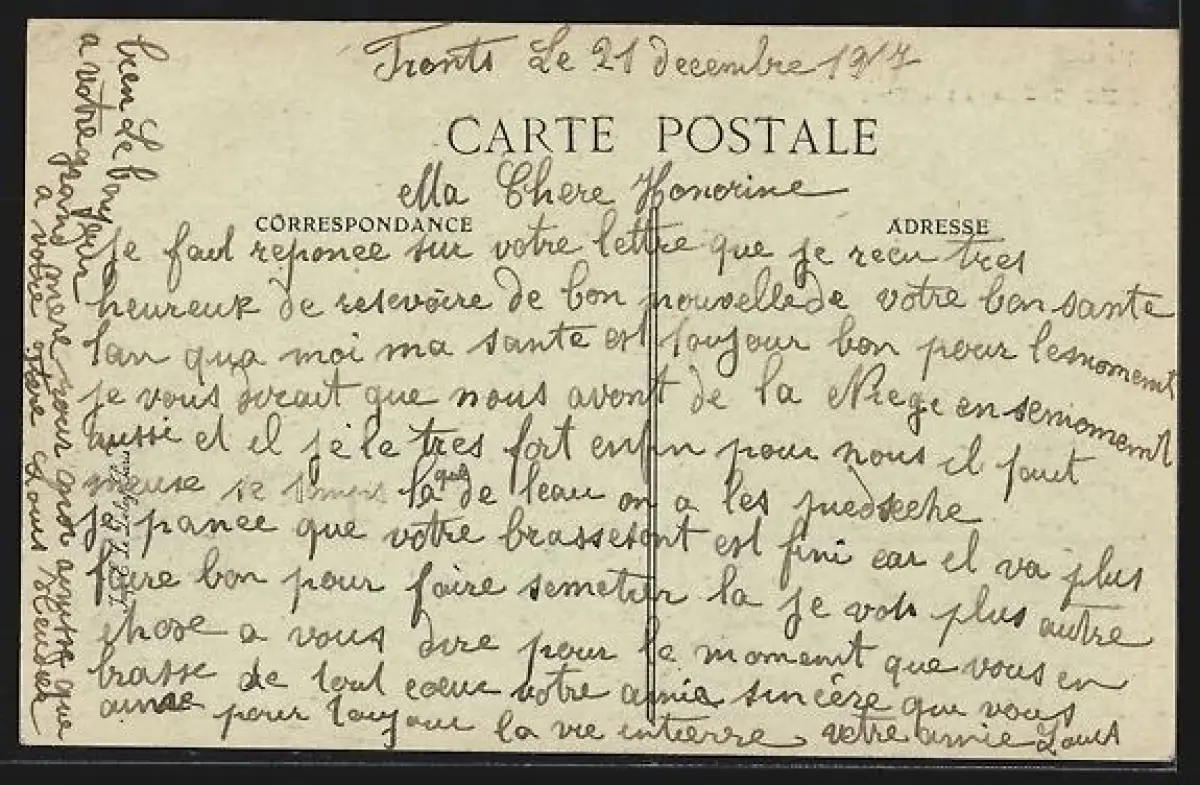 Fronts Le 21 decembre 1917
CARTE POSTALE
Ma Chere Honorine
CORRESPONDANCE
ADRESSE
Je fait reponce sur votre lettre que je recu tres
heureux de resevoire de bon nouvelle de votre bon sante
tan qua moi ma sante est toujour bon pour lesmomemt
je vous dirait que nous avont de la Niege en seniomemt
aussi et il jèle tres fort enfin pour nous il faut
mieuse se la que de leau on a les piedseche
Je pance que votre brassesont est fini car il va plus
faire bon pour faire semetier la je voit plus autre
chose a vous dire pour le moment que vous en
brasse de tout coeur votre amie sincère que vous
aime pour toujour la vie entierre votre amie Louis
bien Le bonjour
a votre grand mère pour mon que
a votre Louis